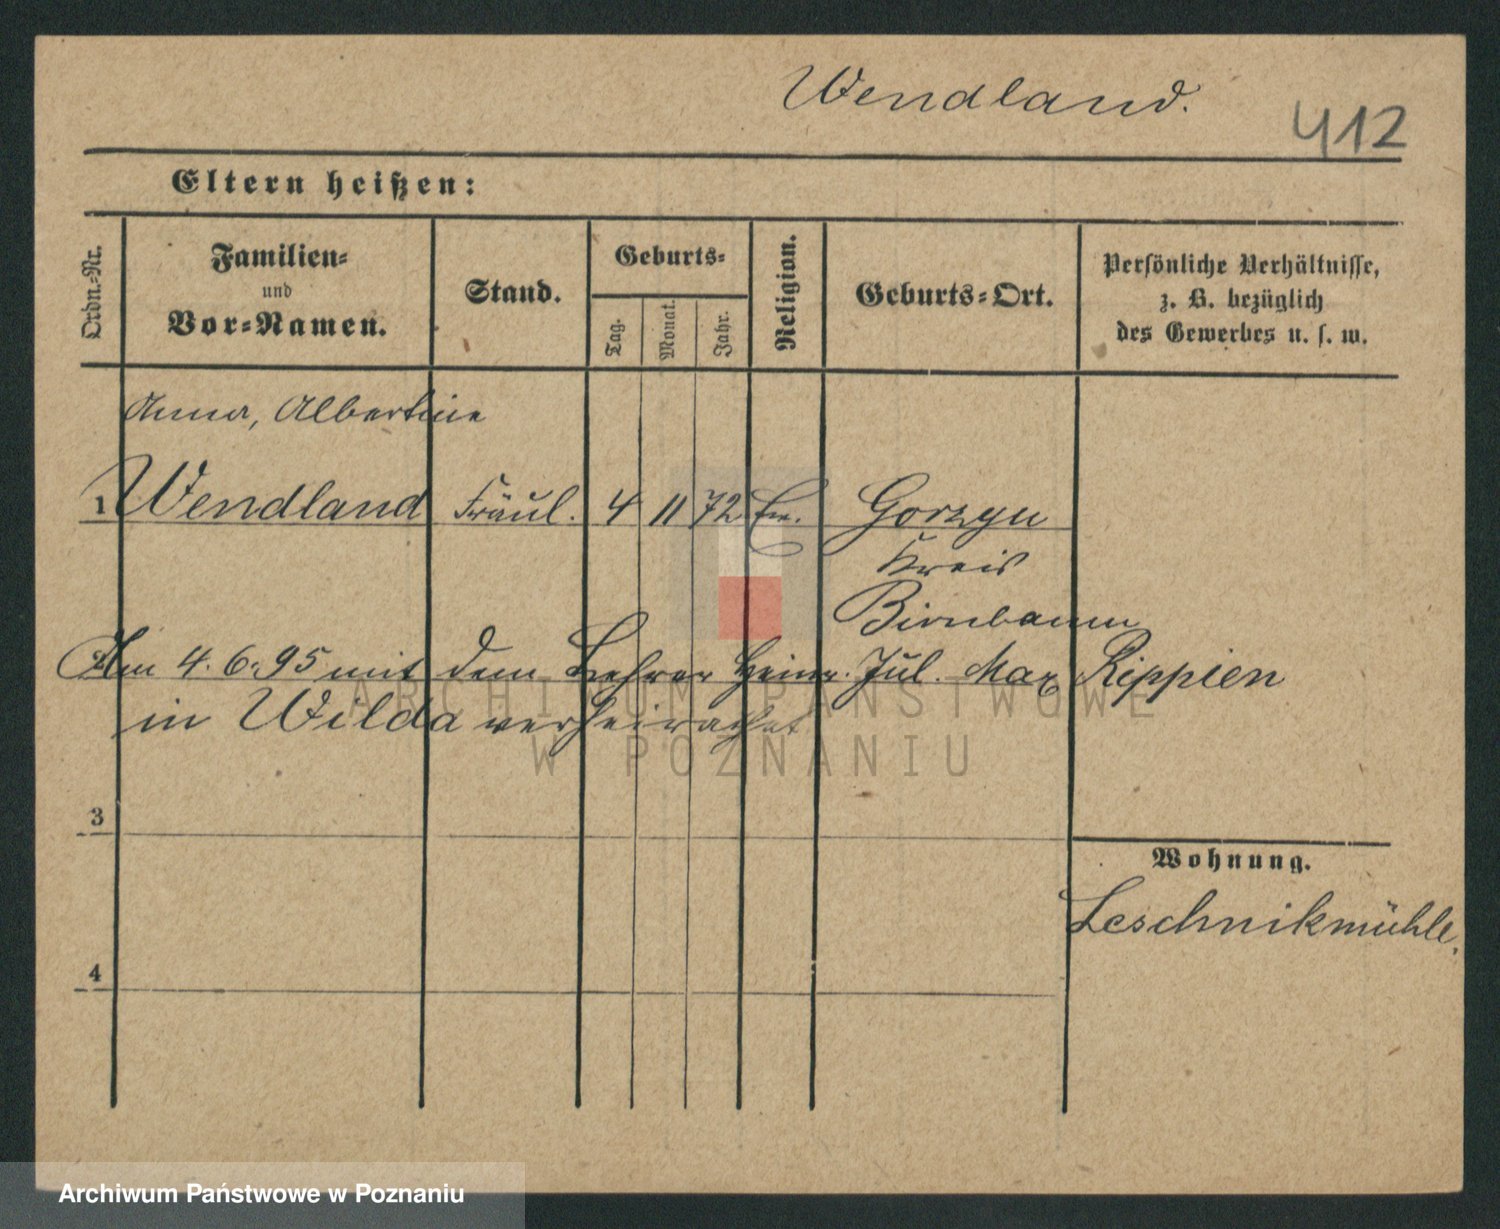 Wendland.
412
Eltern heißen:
Ordn.-Nr.
Familien-
und
Vor-Namen.
Stand.
Geburts-
Tag.
Monat.
Jahr.
Religion.
Geburts-Ort.
Persönliche Verhältnisse,
z. B. bezüglich
des Gewerbes u. s. w.
Anna, Albertine
1 Wendland Fräul. 4 11 72 Ev. Gorzyn
Kreis
Birnbaum
2
Am 4.6.95 mit dem Lehrer Heinr. Jul. Max Rippien
in Wilda verheirathet
ARCHIWUM PAŃSTWOWE
W POZNANIU
3
Wohnung.
Leschnikmühle.
4
Archiwum Państwowe w Poznaniu